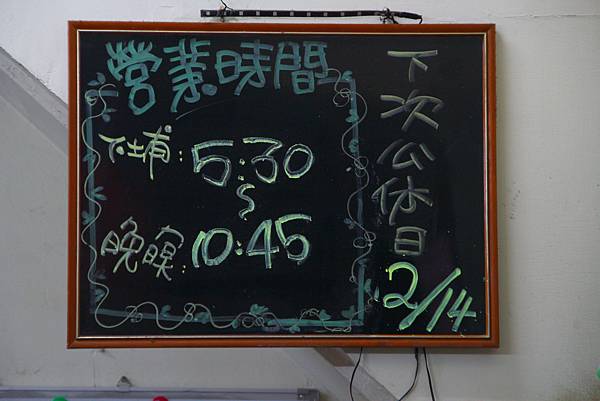 營業時間
下埔：5:30
~
晚暝：10:45
下次公休日
2/14